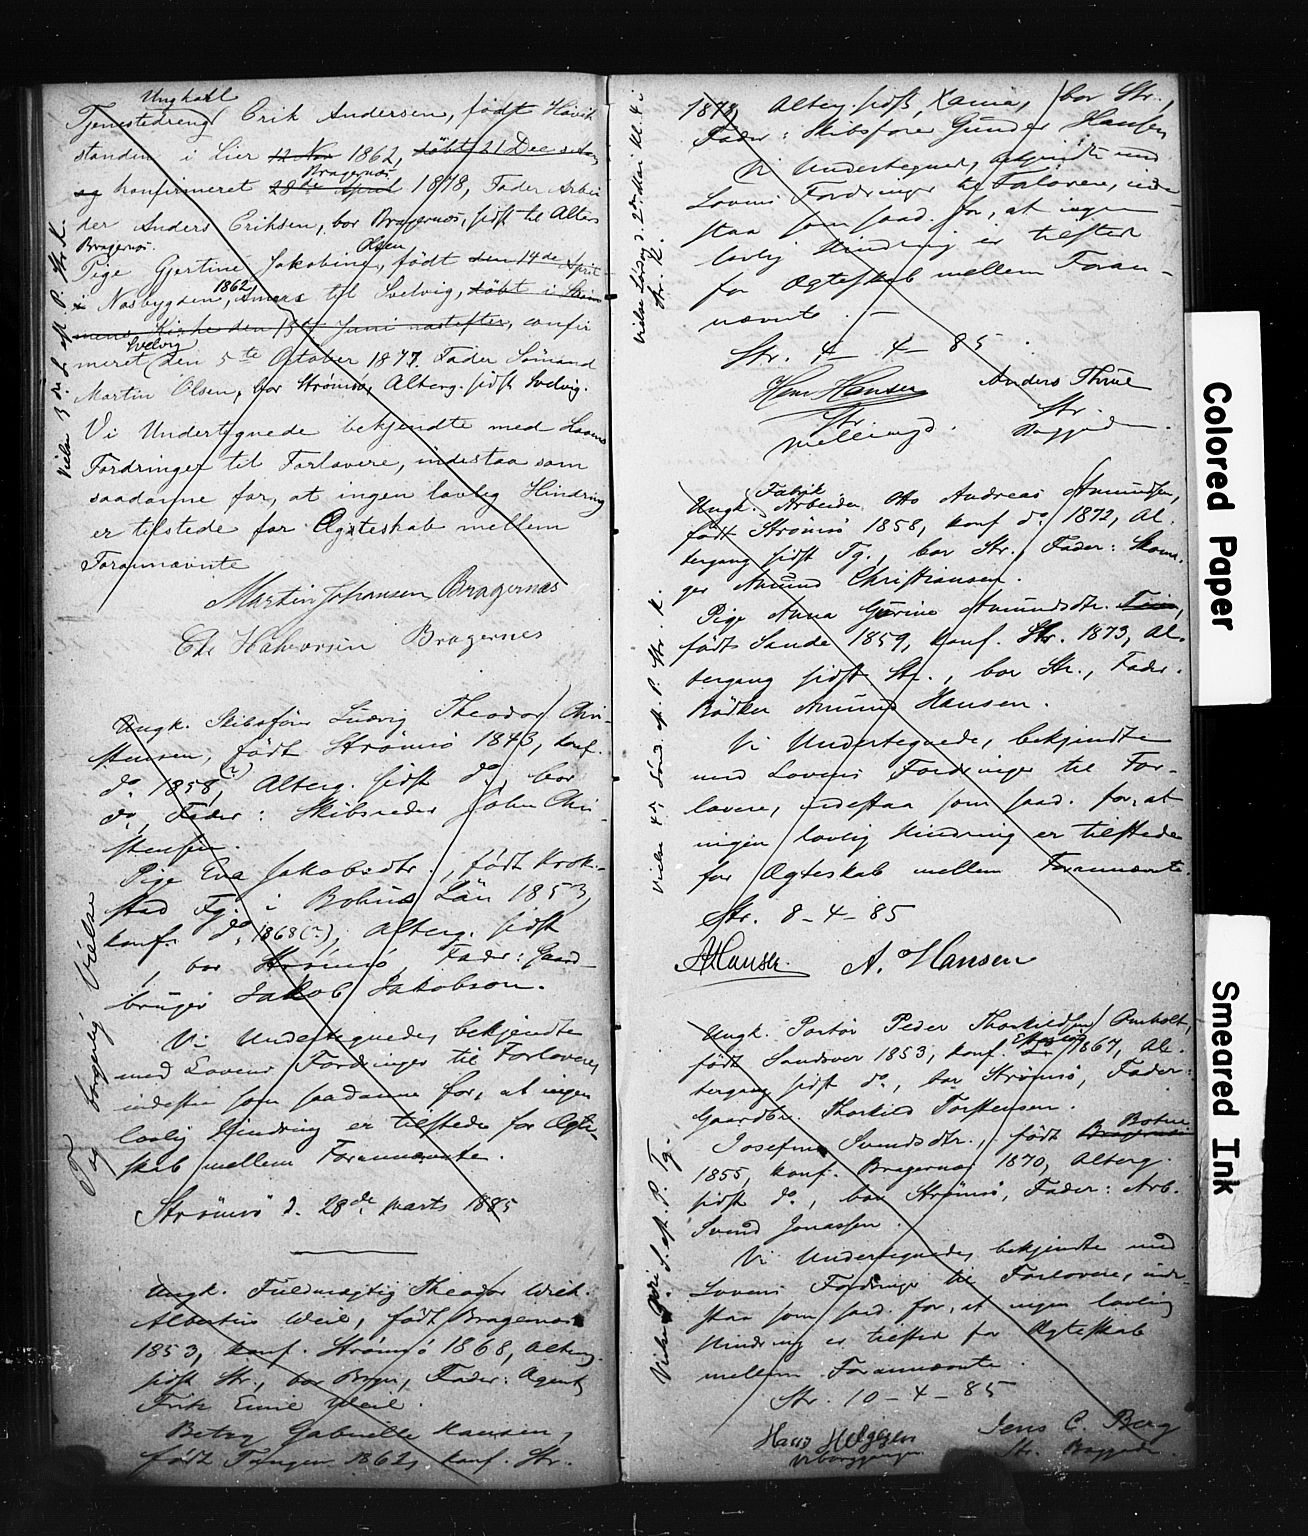 Ungkarl
Tjenestedreng Erik Andersen, født Havik
standen i Lier 12 Nov 1862, døbt 21 Dec s. Aar
og konfirmeret 28de April 1878, Fader Arbei
Bragernæs
der Anders Eriksen, bor Bragernæs, sidst til Alters
Bragernæs.
Pige Gjertine Jakobine Olsen, født den 14de April
i Næsbygden 1862, Annex til Svelvig, døbt i
Kirke den 15de Juni næstefter, confir
meret Svelvig den 5te October 1877. Fader Sømand
Martin Olsen, bor Strømsø, Alterg. sidst Svelvig.
Vi Undertegnede bekjendte med Lovens
Fordringer til Forlovere, indestaa som
saadanne for, at ingen lovlig Hindring
er tilstede for Ægteskab mellem
Forannævnte
Martin Johansen Bragernæs
Halvorsen Bragernes
Ungk. Skibsfører Ludvig Theodor Chri-
stensen, født Strømsø 1843, konf.
do 1858 (?), Alterg. sidst do, bor
do, Fader: Skibsreder John Chri-
stensen.
Pige Eva Jakobsdtr., født Krok-
stad Tg. i Bohus Län 1853,
konf. do 1868 (?), Alterg. sidst
, bor Strømsø, Fader: Gaard-
bruger Jakob Jakobson.
Vi Undertegnede, bekjendte
med Lovens Fordringer til Forlovere,
indestaa som saadanne for, at ingen
lovlig Hindring er tilstede for Ægte-
skab mellem Forannævnte.
Strømsø d. 28de Marts 1885
Ungk. Fuldmægtig Theodor Wilh.
Albertus Weil, født Bragernæs
1853, konf. Strømsø 1868, Alterg.
sidst Str., bor Brgn., Fader: Agent
Fritz Emil Weil.
Betzy Gabrielle Hansen,
født Tangen 1862, konf. Str.
Vielse 3die S. eft. P. Str. K.
Tg. borgerlig Vielse
1878, Alterg. sidst Xania, bor Str.,
Fader: Skibsfører Gunder Hansen
Vi Undertegnede, bekjendte med
Lovens Fordringer til Forlovere, inde-
staa som saad. for, at ingen
lovlig Hindring er tilsted
for Ægteskab mellem Foran-
nævnte. –
Str. 4 – 4 – 85.
Hans Hansen Anders Thrue
Str. Str.
Baggaden
Ungk. Fabrik Arbeider Otto Andreas Amundsen,
født Strømsø 1858, konf do. 1872, Al-
tergang sidst Tg., bor Str., Fader: Skoma-
ger Amund Christiansen.
Pige Anna Gurine Amundsdtr.
født Sande 1859, konf. Str. 1873, Al-
tergang sidst Str., bor Str., Fader.
Bødker Amund Hansen.
Vi Undertegnede, bekjendte
med Lovens Fordringer til For-
lovere, indestaa som saad. for, at
ingen lovlig Hindring er tilstede
for Ægteskab mellem Forannævnte.
Str. 8 – 4 – 85
A. Hansen A. Hansen
Ungk. Portør Peder Thorkildsen Omholt,
født Sandsvær 1853, konf. 1867, Al-
tergang sidst do, bor Strømsø, Fader:
Gaardbr. Thorkild Torstensen.
Josefine Svendsdtr., født Bragernæs
1855, konf. Bragernæs 1870, Alterg.
sidst do., bor Strømsø, Fader: Arb.
Svend Jonassen.
Vi Undertegnede, bekjendte med
Lovens Fordringer til Forlovere, inde-
staa som saad. for, at ingen lovlig
Hindring er tilsted for Ægteskab
mellem Forannævnte.
Str. 10 – 4 – 85
Hans Helgesen Jens C. Berg
Str. Baggaden
Vielse Lørdag d. 2den Mai Kl. 4
Str. K.
Vielse 4de Sønd. eft. P. Str. K.
S. eft. P. Tg.
Colored Paper
Smeared Ink